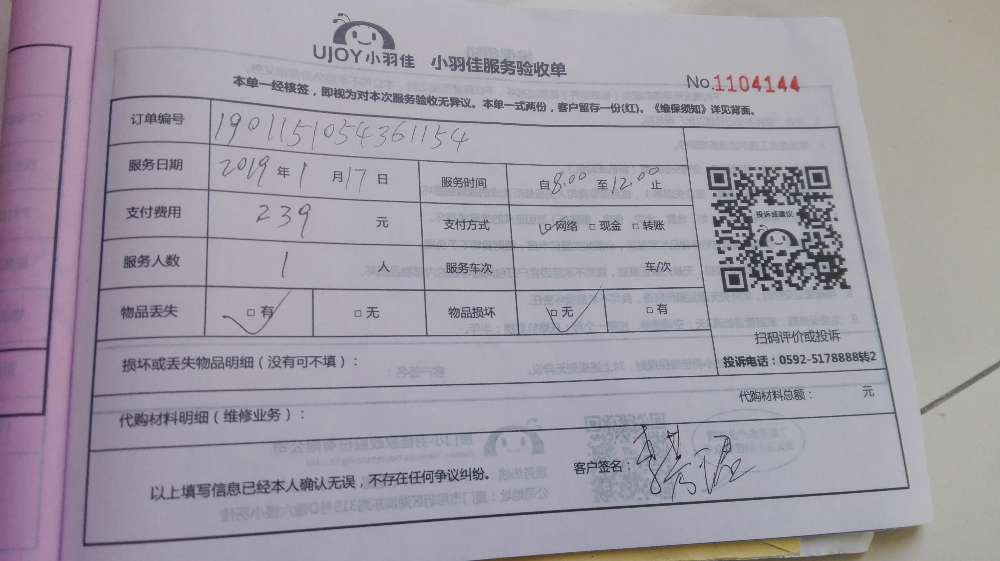 UJOY小羽佳 小羽佳服务验收单
No.1104144
本单一经核签，即视为对本次服务验收无异议。本单一式两份，客户留存一份(红)。《维保须知》详见背面。
订单编号 1901151054361154
服务日期 2019年1月17日 服务时间 自8:00至12:00止
支付费用 239 元 支付方式 □网络 □现金 □转账
服务人数 1 人 服务车次 车/次
物品丢失 □有 □无 物品损坏 □无 □有
投诉或建议
扫码评价或投诉
投诉电话：0592-5178888转2
损坏或丢失物品明细（没有可不填）：
代购材料明细（维修业务）： 代购材料总额： 元
以上填写信息已经本人确认无误，不存在任何争议纠纷。 客户签名：